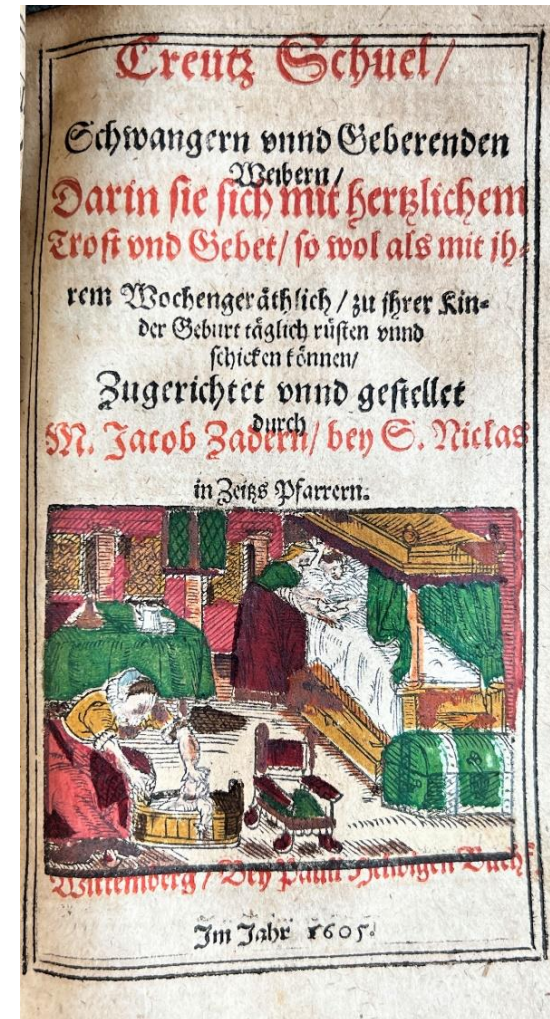 Creutz Schuel/
Schwangern vnnd Geberenden
Weibern/
Darin sie sich mit hertzlichem
Trost vnd Gebet/ so wol als mit jh-
rem Wochengeräthlich/ zu jhrer Kin-
der Geburt täglich rüsten vnnd
schicken können/
Zugerichtet vnnd gestellet
durch
M. Jacob Zadern/ bey S. Niclas
in Zeitzs Pfarrern.
Wittemberg/ Bey Pauli Helwigen Buch.
Im Jahr 1605.